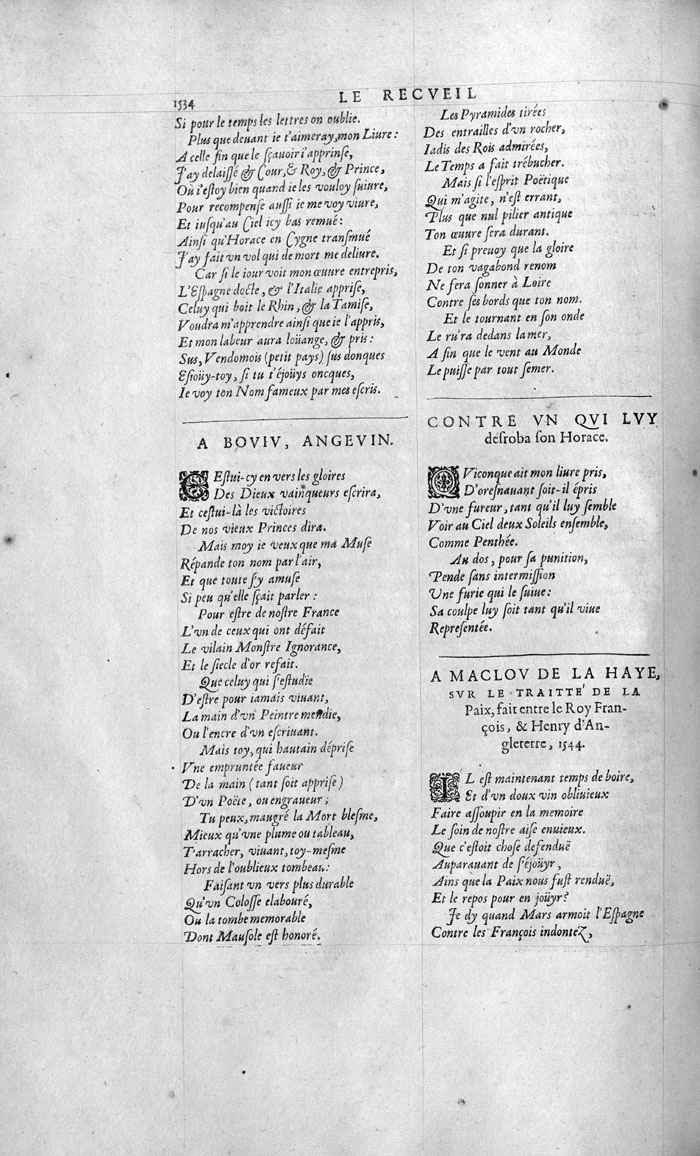 1534
LE RECVEIL
Si pour le temps les lettres on oublie.
Plus que deuant ie t'aimeray, mon Liure:
A celle fin que le sçauoir i'apprinse,
J'ay delaissé & Cour, & Roy, & Prince,
Où i'estoy bien quand ie les vouloy suiure,
Pour recompense aussi ie me voy viure,
Et iusqu'au Ciel icy bas remué:
Ainsi qu'Horace en Cygne transmué
J'ay fait vn vol qui de mort me deliure.
Car si le iour voit mon œuure entrepris,
L'Espagne docte, & l'Italie apprise,
Celuy qui boit le Rhin, & la Tamise,
Voudra m'apprendre ainsi que ie l'appris,
Et mon labeur aura loüange, & pris:
Sus, Vendomois (petit pays) sus donques
Esioüy-toy, si tu t'éjoüys oncques,
Ie voy ton Nom fameux par mes escris.
A BOVIV, ANGEVIN.
CEstui-cy en vers les gloires
Des Dieux vainqueurs escrira,
Et cestui-là les victoires
De nos vieux Princes dira.
Mais moy ie veux que ma Muse
Répande ton nom par l'air,
Et que toute s'y amuse
Si peu qu'elle sçait parler:
Pour estre de nostre France
L'vn de ceux qui ont défait
Le vilain Monstre Ignorance,
Et le siecle d'or refait.
Que celuy qui s'estudie
D'estre pour iamais viuant,
La main d'vn Peintre mendie,
Ou l'encre d'vn escriuant.
Mais toy, qui hautain déprise
Vne empruntée faueur
De la main (tant soit apprise)
D'vn Poëte, ou engraueur;
Tu peux, maugré la Mort blesme,
Mieux qu'vne plume ou tableau,
T'arracher, viuant, toy-mesme
Hors de l'oublieux tombeau:
Faisant vn vers plus durable
Qu'vn Colosse elabouré,
Ou la tombe memorable
Dont Mausole est honoré.
Les Pyramides tirées
Des entrailles d'vn rocher,
Iadis des Rois admirées,
Le Temps a fait trébucher.
Mais si l'esprit Poëtique
Qui m'agite, n'est errant,
Plus que nul pilier antique
Ton œuure sera durant.
Et si preuoy que la gloire
De ton vagabond renom
Ne fera sonner à Loire
Contre ses bords que ton nom.
Et le tournant en son onde
Le ru'ra dedans la mer,
A fin que le vent au Monde
Le puisse par tout semer.
CONTRE VN QVI LVY
desroba son Horace.
QViconque ait mon liure pris,
D'oresnauant soit-il épris
D'vne fureur, tant qu'il luy semble
Voir au Ciel deux Soleils ensemble,
Comme Penthée.
Au dos, pour sa punition,
Pende sans intermission
Une furie qui le suiue:
Sa coulpe luy soit tant qu'il viue
Representée.
A MACLOV DE LA HAYE,
SVR LE TRAITTÉ DE LA
Paix, fait entre le Roy Fran-
çois, & Henry d'An-
gleterre, 1544.
IL est maintenant temps de boire,
Et d'vn doux vin obliuieux
Faire assoupir en la memoire
Le soin de nostre aise enuieux.
Que c'estoit chose defenduë
Auparauant de s'éjoüyr,
Ains que la Paix nous fust renduë,
Et le repos pour en joüyr?
Je dy quand Mars armoit l'Espagne
Contre les François indontez,